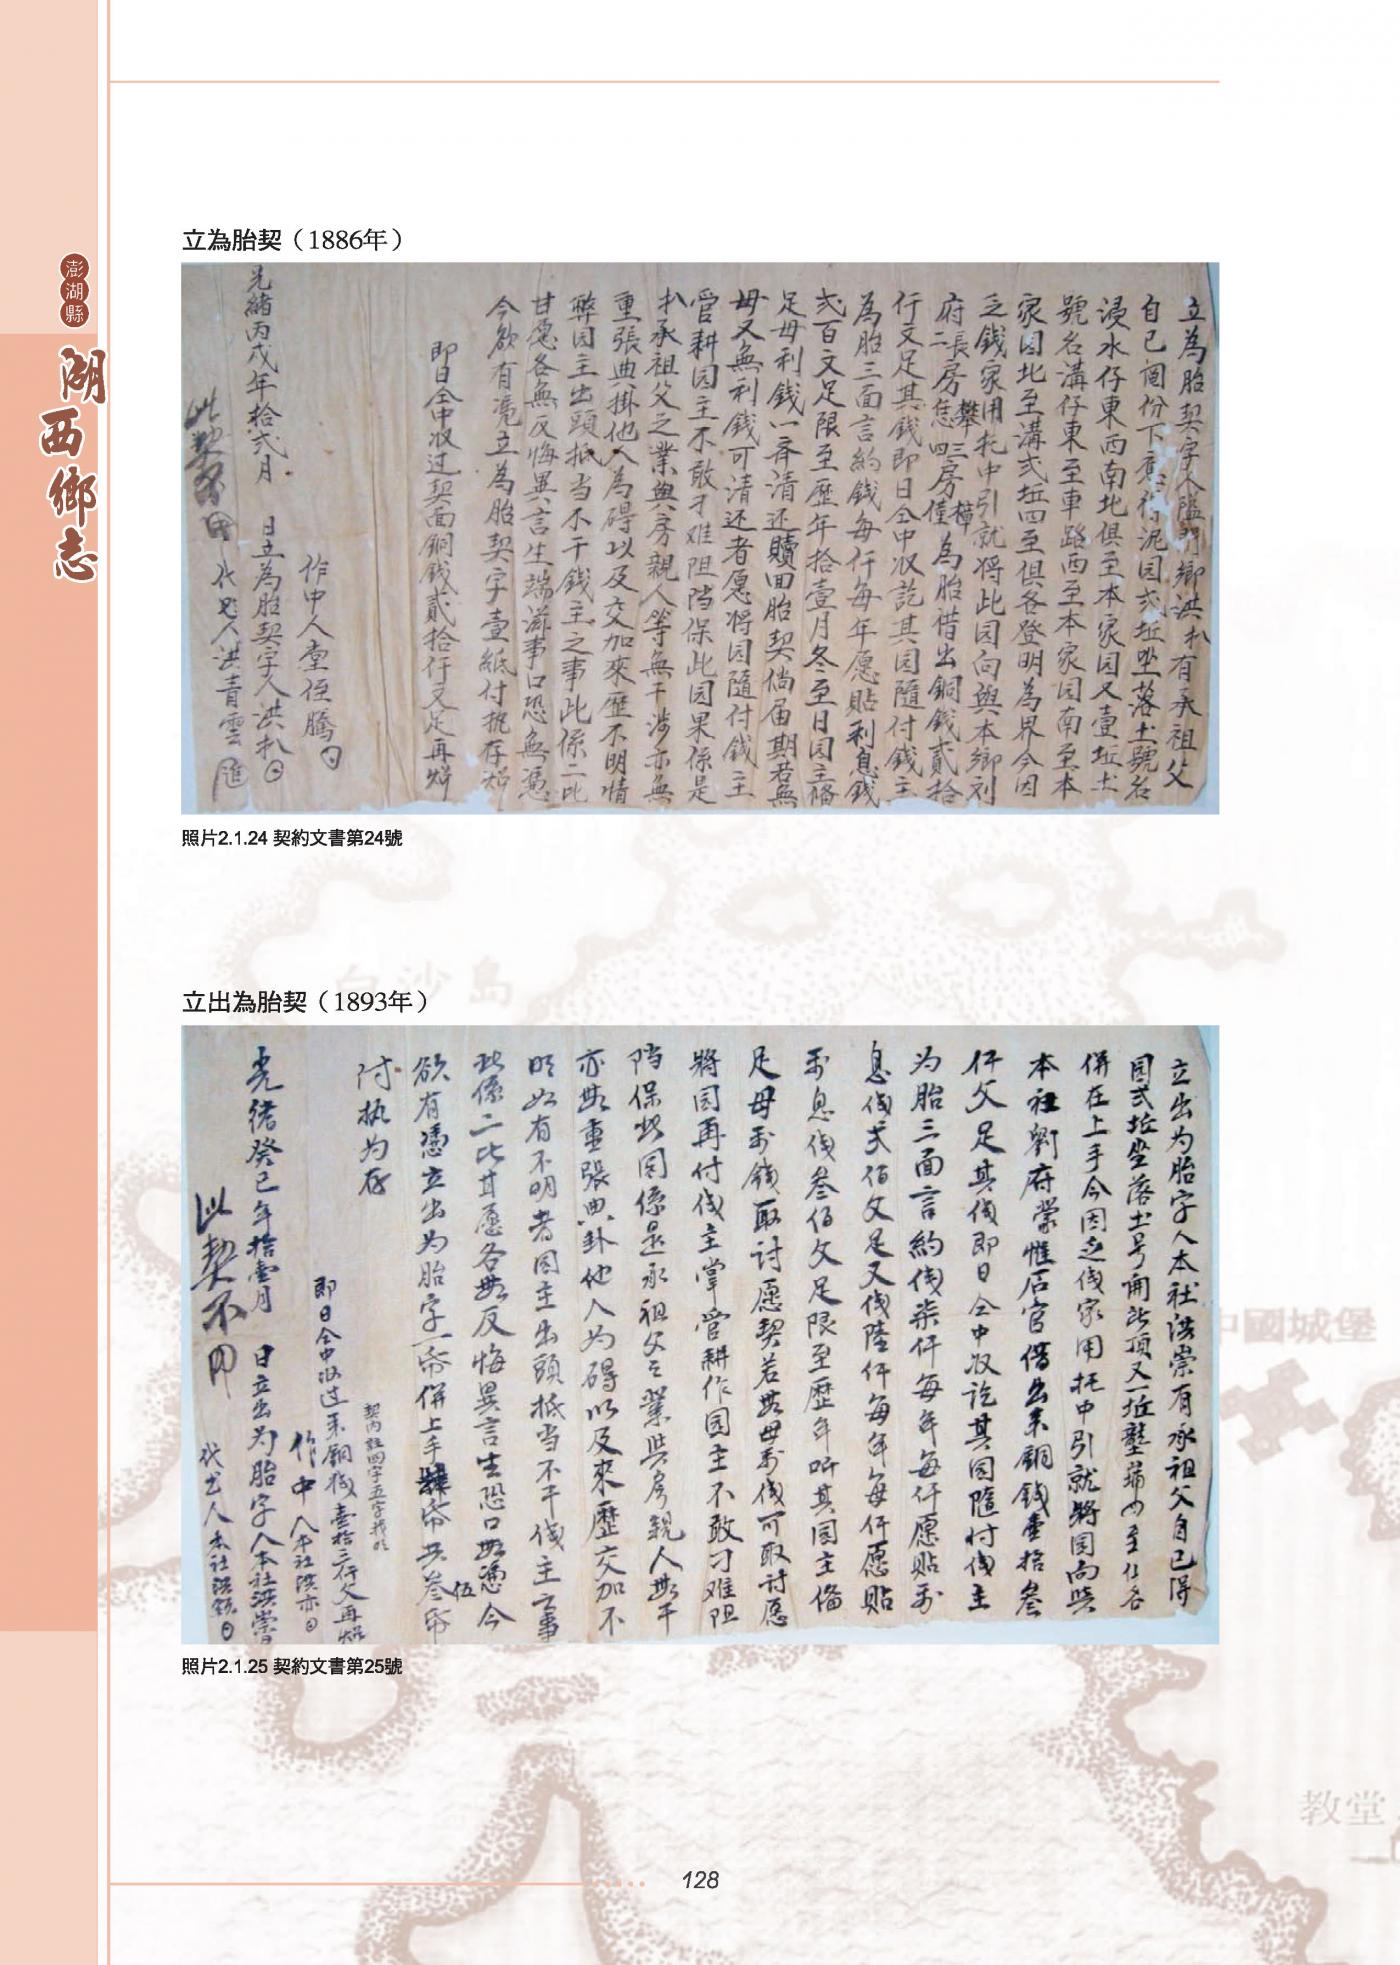 澎湖縣
湖西鄉志
立為胎契（1886年）
立為胎契字人隘門鄉洪扒有承祖父
自己鬮份下旱 泥园弍坵坐落土號名
浸水仔東西南北俱至本家园又壹坵土
號名溝仔東至車路西至本家园南至本
家园北至溝弍坵四至俱各登明為界今因
乏錢家用托中引就將此园向與本鄉刘
府長房攀三房樟二房恁四房僅為胎借出銅錢貳拾
仟文足其錢即日仝中收訖其园隨付錢主
為胎三面言約錢每仟每年愿貼利息錢
弍百文足限至歷年拾壹月冬至日园主俻
足母利錢一齐清还贖回胎契倘届期若無
母又無利錢可清还者愿将园隨付錢主
管耕园主不敢刁难阻挡保此园果係是
扒承祖父之業與房親人等無干涉亦無
重張典掛他人為碍以及交加來歷不明情
弊园主出頭抵当不干錢主之事此係二比
甘愿各無反悔異言生端滋事口恐無憑
今欲有憑立為胎契字壹紙付执存炤
即日仝中收过契面銅錢貳拾仟文足再炤
作中人堂侄騰
光緒丙戌年拾弍月 日立為胎契字人洪扒
代书人洪青雲
此契不用
照片2.1.24 契約文書第24號
立出為胎契（1893年）
立出为胎字人本社洪崇有承祖父自己得
园弍坵坐落土号 此頂又一坵壟 四至俱各
併在上手今因乏伐家用托中引就將园向與
本社劉府掌惟后官借出来銅錢壹拾叁
仟文足其伐即日仝中收訖其园隨付伐主
为胎三面言約伐柒仟每年每仟愿貼利
息伐弍佰文足又伐陸仟每年每仟愿貼
利息伐叁佰文足限至歷年听其园主俻
足母利錢取討愿契若無母利伐可取討愿
將园再付伐主掌管耕作园主不敢刁难阻
挡保此园係是承祖父之業與房親人無干
亦無重張典卦他人为碍以及來歷交加不
明如有不明者园主出頭抵当不干伐主之事
此係二比甘愿各無反悔異言生恐口無憑今
欲有憑立出为胎字一帋併上手肆帋共叁伍帋
付执为存
契内註四字五字找明
即日仝中收过来銅伐壹拾三仟文再炤
作中人本社洪亦
光緒癸巳年拾壹月 日立出为胎字人本社洪崇
代书人本社洪
此契不用
照片2.1.25 契約文書第25號
白沙島
中國城堡
教堂
128